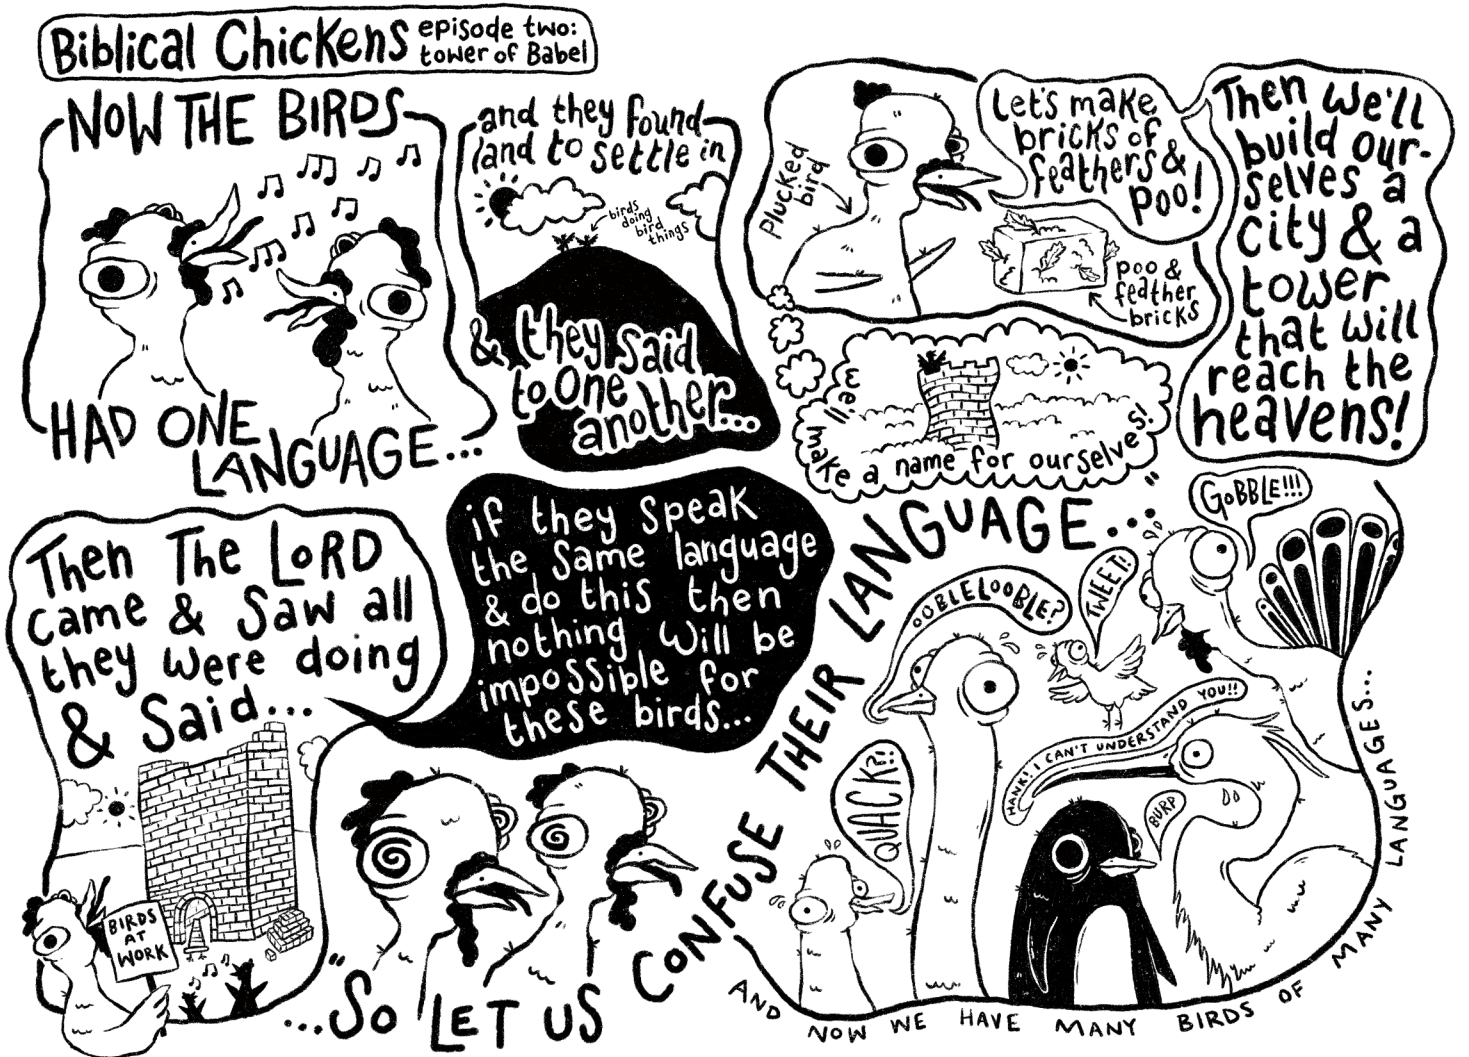 Biblical Chickens
episode two:
tower of Babel
NOW THE BIRDS
HAD ONE
LANGUAGE...
and they found
land to settle in
birds
doing
bird
things
& they said
to one
another...
Plucked
bird
Let's make
bricks of
feathers &
poo!
poo &
feather
bricks
Then we'll
build our-
selves a
city & a
tower
that will
reach the
heavens!
we'll make a name for ourselves!
Then The LORD
came & Saw all
they were doing
& Said...
BIRDS
AT
WORK
if they speak
the same language
& do this then
nothing will be
impossible for
these birds...
"...So LET US
CONFUSE THEIR LANGUAGE..."
GOBBLE!!!
TWEET!
OOBLELOOBLE?
HANK! I CAN'T UNDERSTAND YOU!!
QUACK?!
BURP
AND NOW WE HAVE MANY BIRDS OF MANY LANGUAGES...